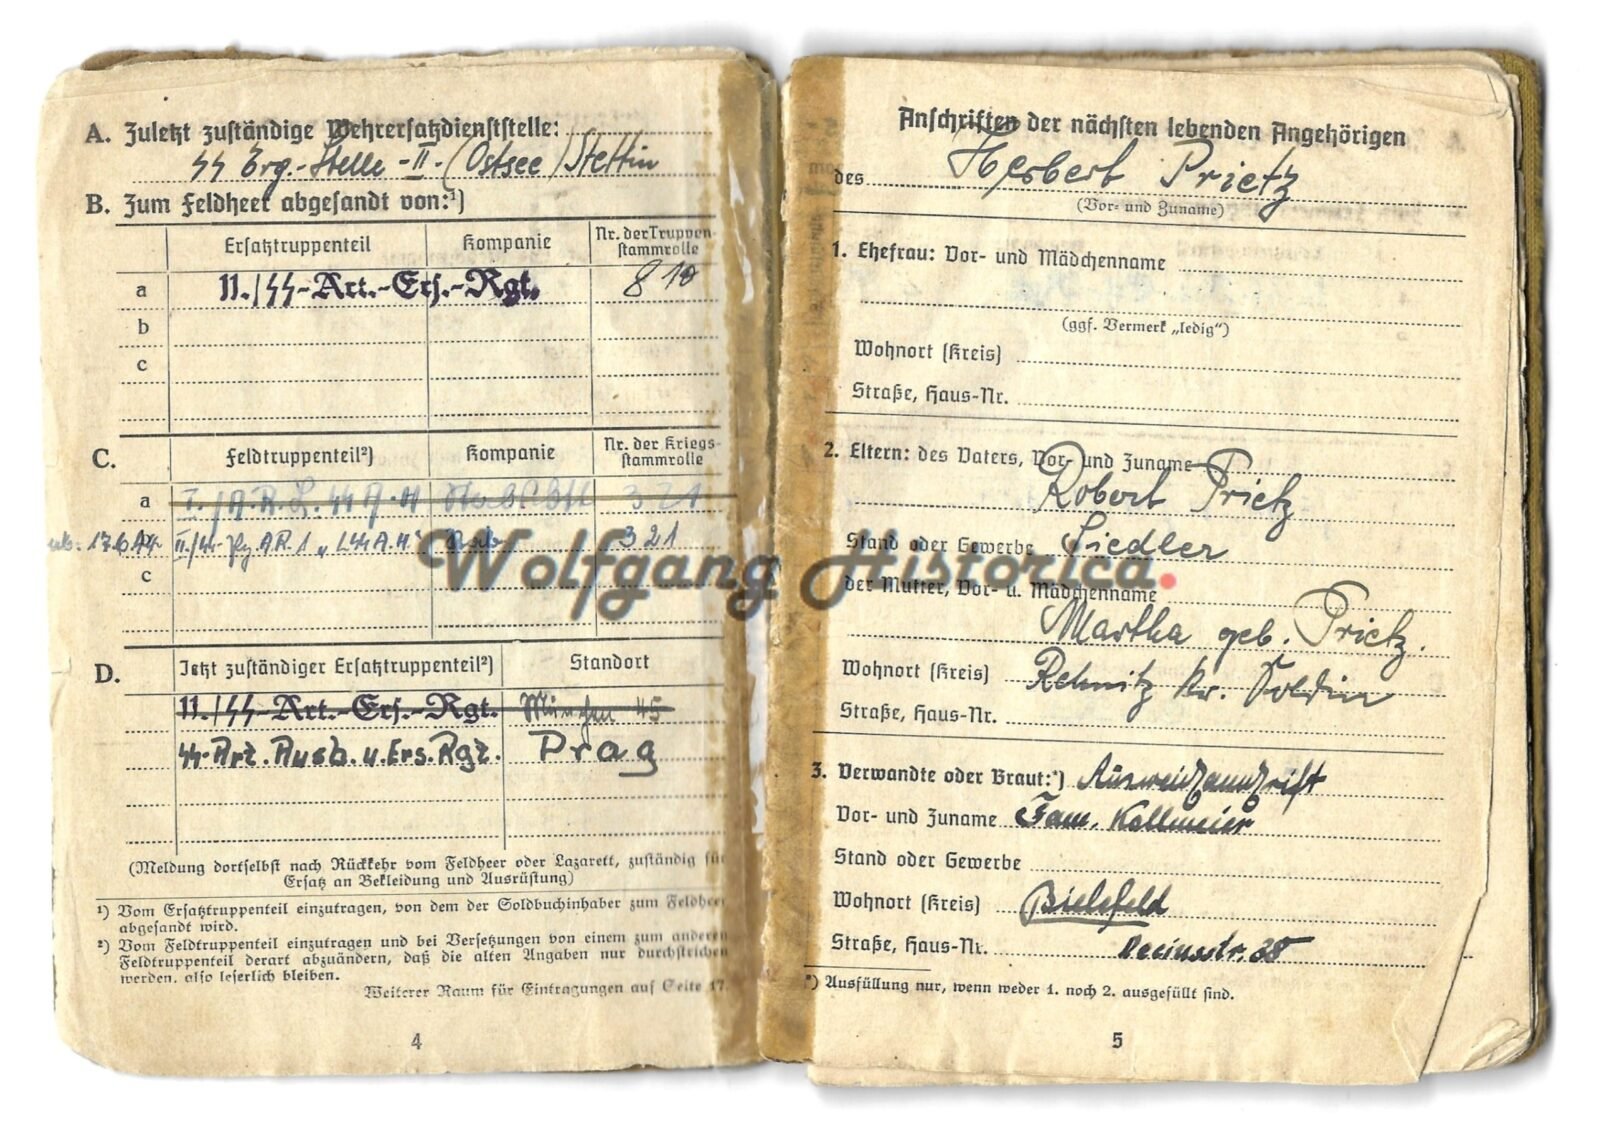 A. Zuletzt zuständige Wehrersatzdienststelle:
SS Erg.-Stelle -II- (Ostsee) Stettin
B. Zum Feldheer abgesandt von:¹)
Ersatztruppenteil Kompanie Nr. der Truppen-stammrolle
a 11./SS-Art.-Ers.-Rgt. 810
b
c
C. Feldtruppenteil²) Kompanie Nr. der Kriegs-stammrolle
a I./A.R.L.SS A.H 321
17.6.44. II./SS-Pz.A.R.1 „LSSA.H." 321
c
D. Jetzt zuständiger Ersatztruppenteil²) Standort
11./SS-Art.-Ers.-Rgt. München 45
SS-Art.Ausb.u.Ers.Rgt. Prag
(Meldung dortselbst nach Rückkehr vom Feldheer oder Lazarett, zuständig für
Ersatz an Bekleidung und Ausrüstung)
¹) Vom Ersatztruppenteil einzutragen, von dem der Soldbuchinhaber zum Feldheer
abgesandt wird.
²) Vom Feldtruppenteil einzutragen und bei Versetzungen von einem zum anderen
Feldtruppenteil derart abzuändern, daß die alten Angaben nur durchstrichen
werden, also leserlich bleiben.
Weiterer Raum für Eintragungen auf Seite 17.
4
Anschriften der nächsten lebenden Angehörigen
des Herbert Prietz
(Vor- und Zuname)
1. Ehefrau: Vor- und Mädchenname
(ggf. Vermerk „ledig")
Wohnort (Kreis)
Straße, Haus-Nr.
2. Eltern: des Vaters, Vor- und Zuname
Robert Prietz
Stand oder Gewerbe Siedler
der Mutter, Vor- u. Mädchenname
Martha geb. Prietz.
Wohnort (Kreis) Rehnitz Kr. Soldin
Straße, Haus-Nr.
3. Verwandte oder Braut:*) Ausweichanschrift
Vor- und Zuname Fam. Kollmeier
Stand oder Gewerbe
Wohnort (Kreis) Bielefeld
Straße, Haus-Nr. Deciusstr. 38
*) Ausfüllung nur, wenn weder 1. noch 2. ausgefüllt sind.
5
Wolfgang Historica.